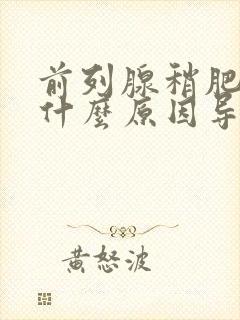 前列腺稍肥
什麼原因导
黄怒波